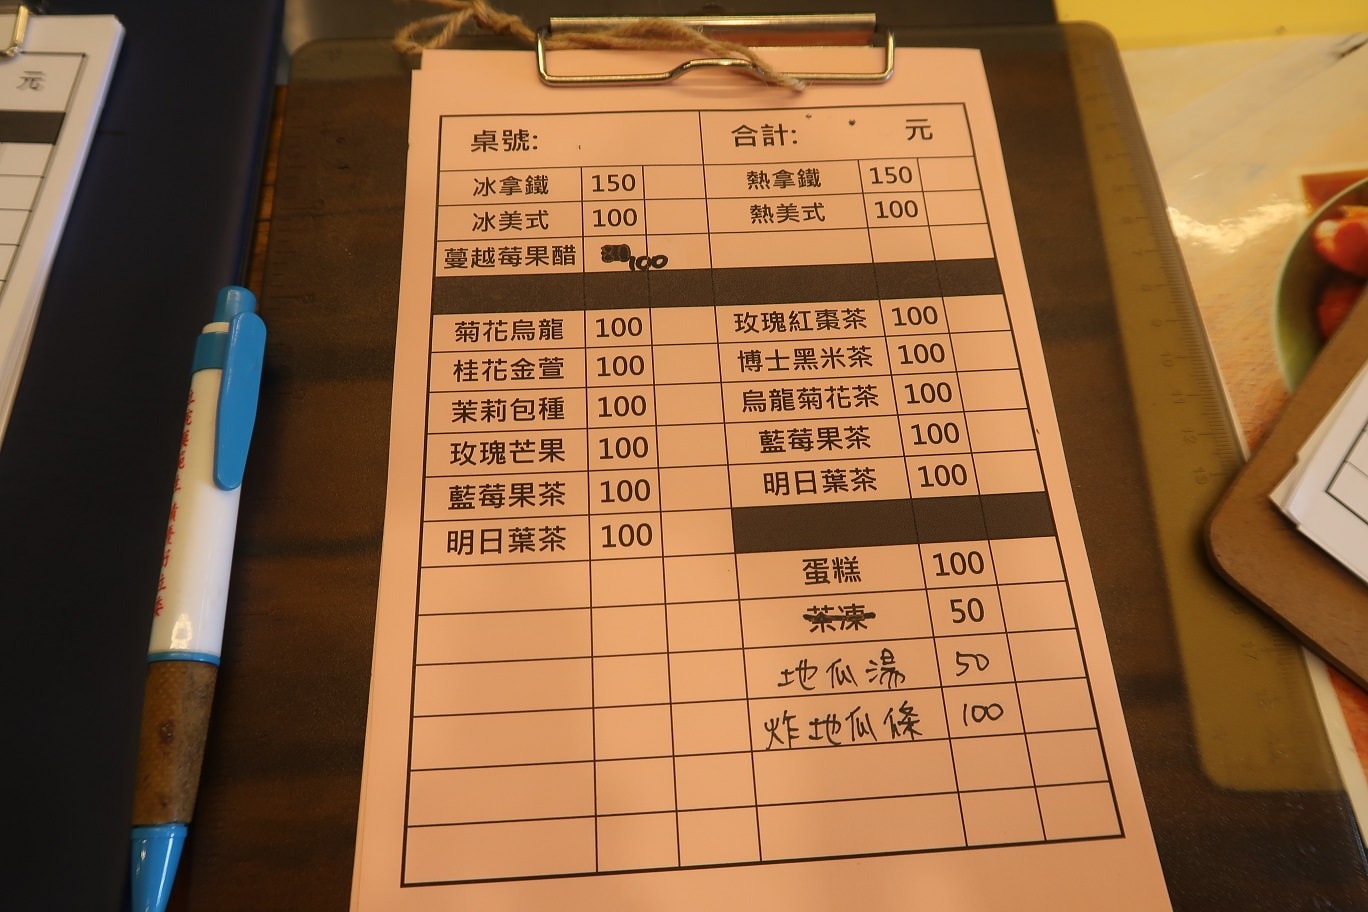 元
桌號: 合計: 元
冰拿鐵 150 熱拿鐵 150
冰美式 100 熱美式 100
蔓越莓果醋 100
菊花烏龍 100 玫瑰紅棗茶 100
桂花金萱 100 博士黑米茶 100
茉莉包種 100 烏龍菊花茶 100
玫瑰芒果 100 藍莓果茶 100
藍莓果茶 100 明日葉茶 100
明日葉茶 100
蛋糕 100
茶凍 50
地瓜湯 50
炸地瓜條 100